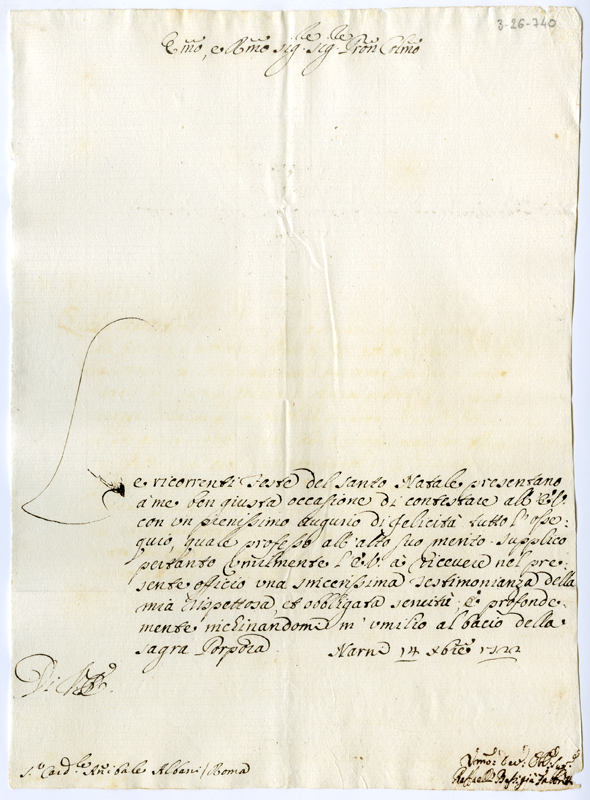 3-26-740
E͠mo, e R͠mo Sig.re Sig.re Pron Col͠mo
Le ricorrenti Feste del Santo Natale presentano
à me ben giusta occasione di contestare all' E.V.
con un pienissimo augurio di felicità tutto l' osse:
quio, quale professo all' alto suo merito. Supplico
pertanto humilmente l' E.V. à ricevere nel pre:
sente officio una sincerissima testimonianza della
mia rispettosa, et obbligata servitù; E profonde:
mente inchinandomi m' umilio al bacio della
sagra Porpora. Narni 14 Xbre 1722
Di V. E.
S.r Card.le Anibale Albani / Roma
Raffaelle